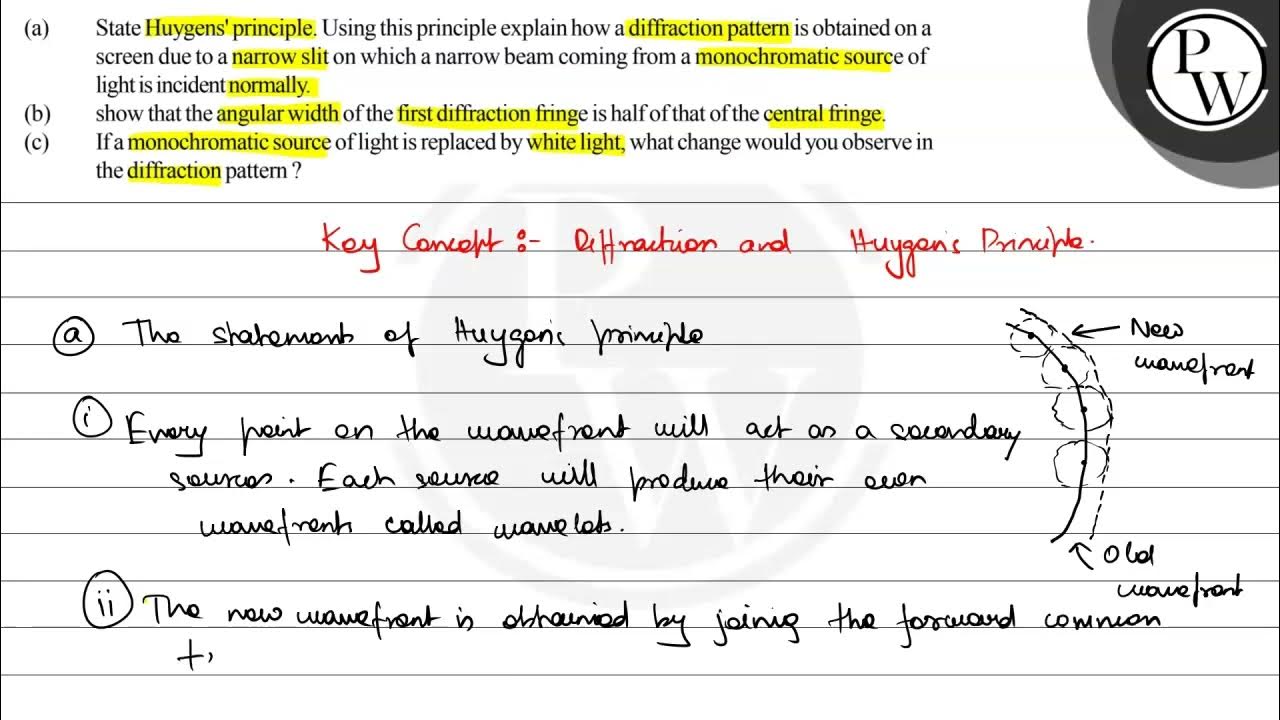 (a) State Huygens' principle. Using this principle explain how a diffraction pattern is obtained on a
screen due to a narrow slit on which a narrow beam coming from a monochromatic source of
light is incident normally.
(b) show that the angular width of the first diffraction fringe is half of that of the central fringe.
(c) If a monochromatic source of light is replaced by white light, what change would you observe in
the diffraction pattern ?
P
W
Key Concept :- Diffraction and Huygen's Principle.
(a) The statement of Huygen's principle
New
wavefront
(i) Every point on the wavefront will act as a secondary
sources. Each source will produce their own
wavefronts called wavelets.
Old
wavefront
(ii) The new wavefront is obtained by joinig the forward common